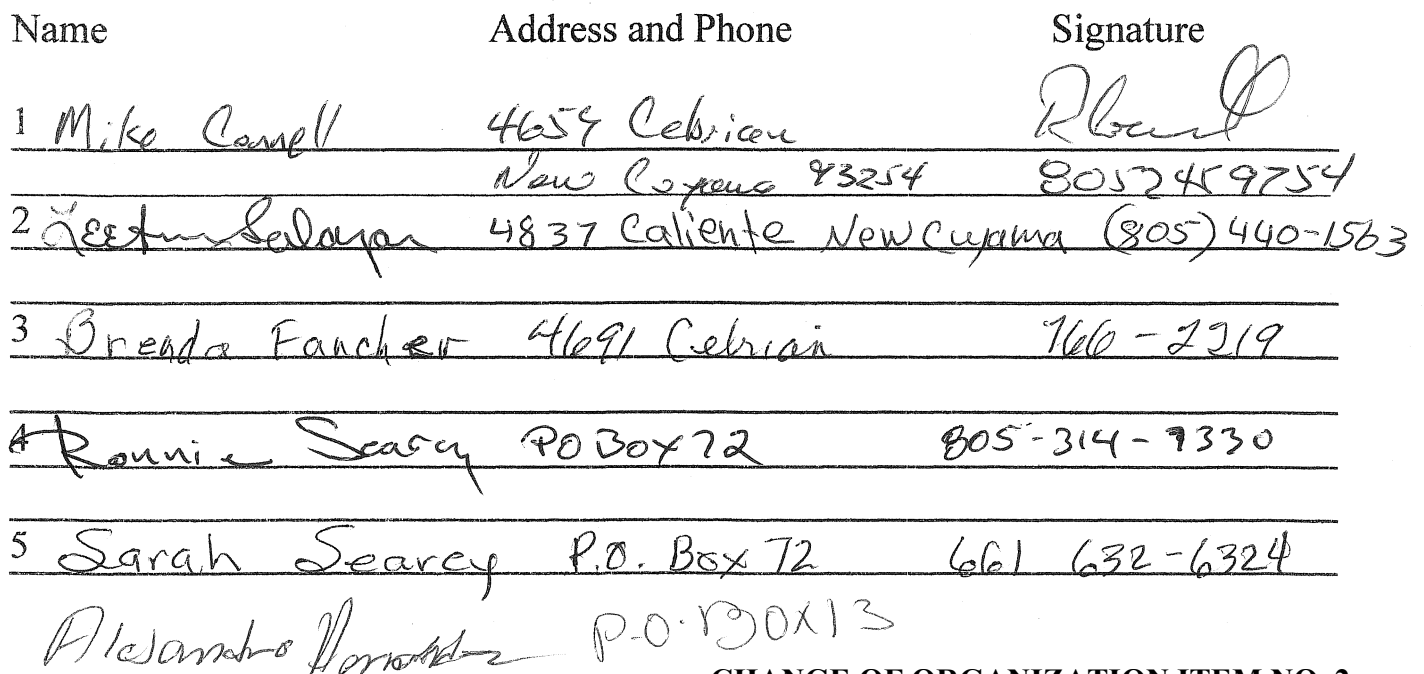 Name Address and Phone Signature
1 Mike Connell 4654 Cebrian
New Cuyama 93254 8052459754
2 4837 Caliente New Cuyama (805) 440-1563
3 Brenda Fancher 4691 Cebrian 766-2219
4 Ronnie Searcy PO Box 72 805-314-9330
5 Sarah Searcy P.O. Box 72 661 632-6324
Alejandro Hernandez P.O. BOX 13
CHANGE OF ORGANIZATION ITEM NO. 2